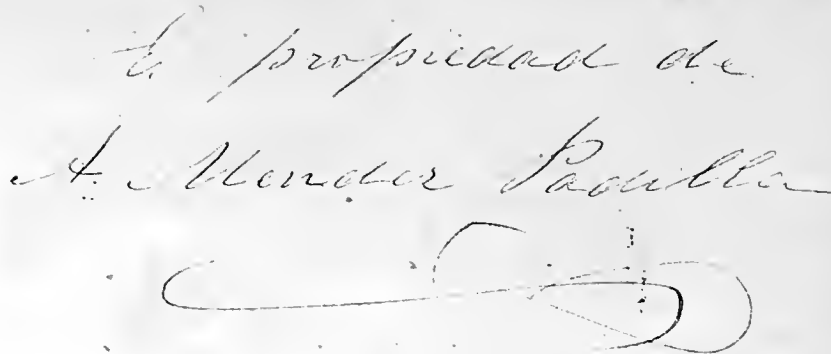 Es propiedad de
A. Mendez Padilla